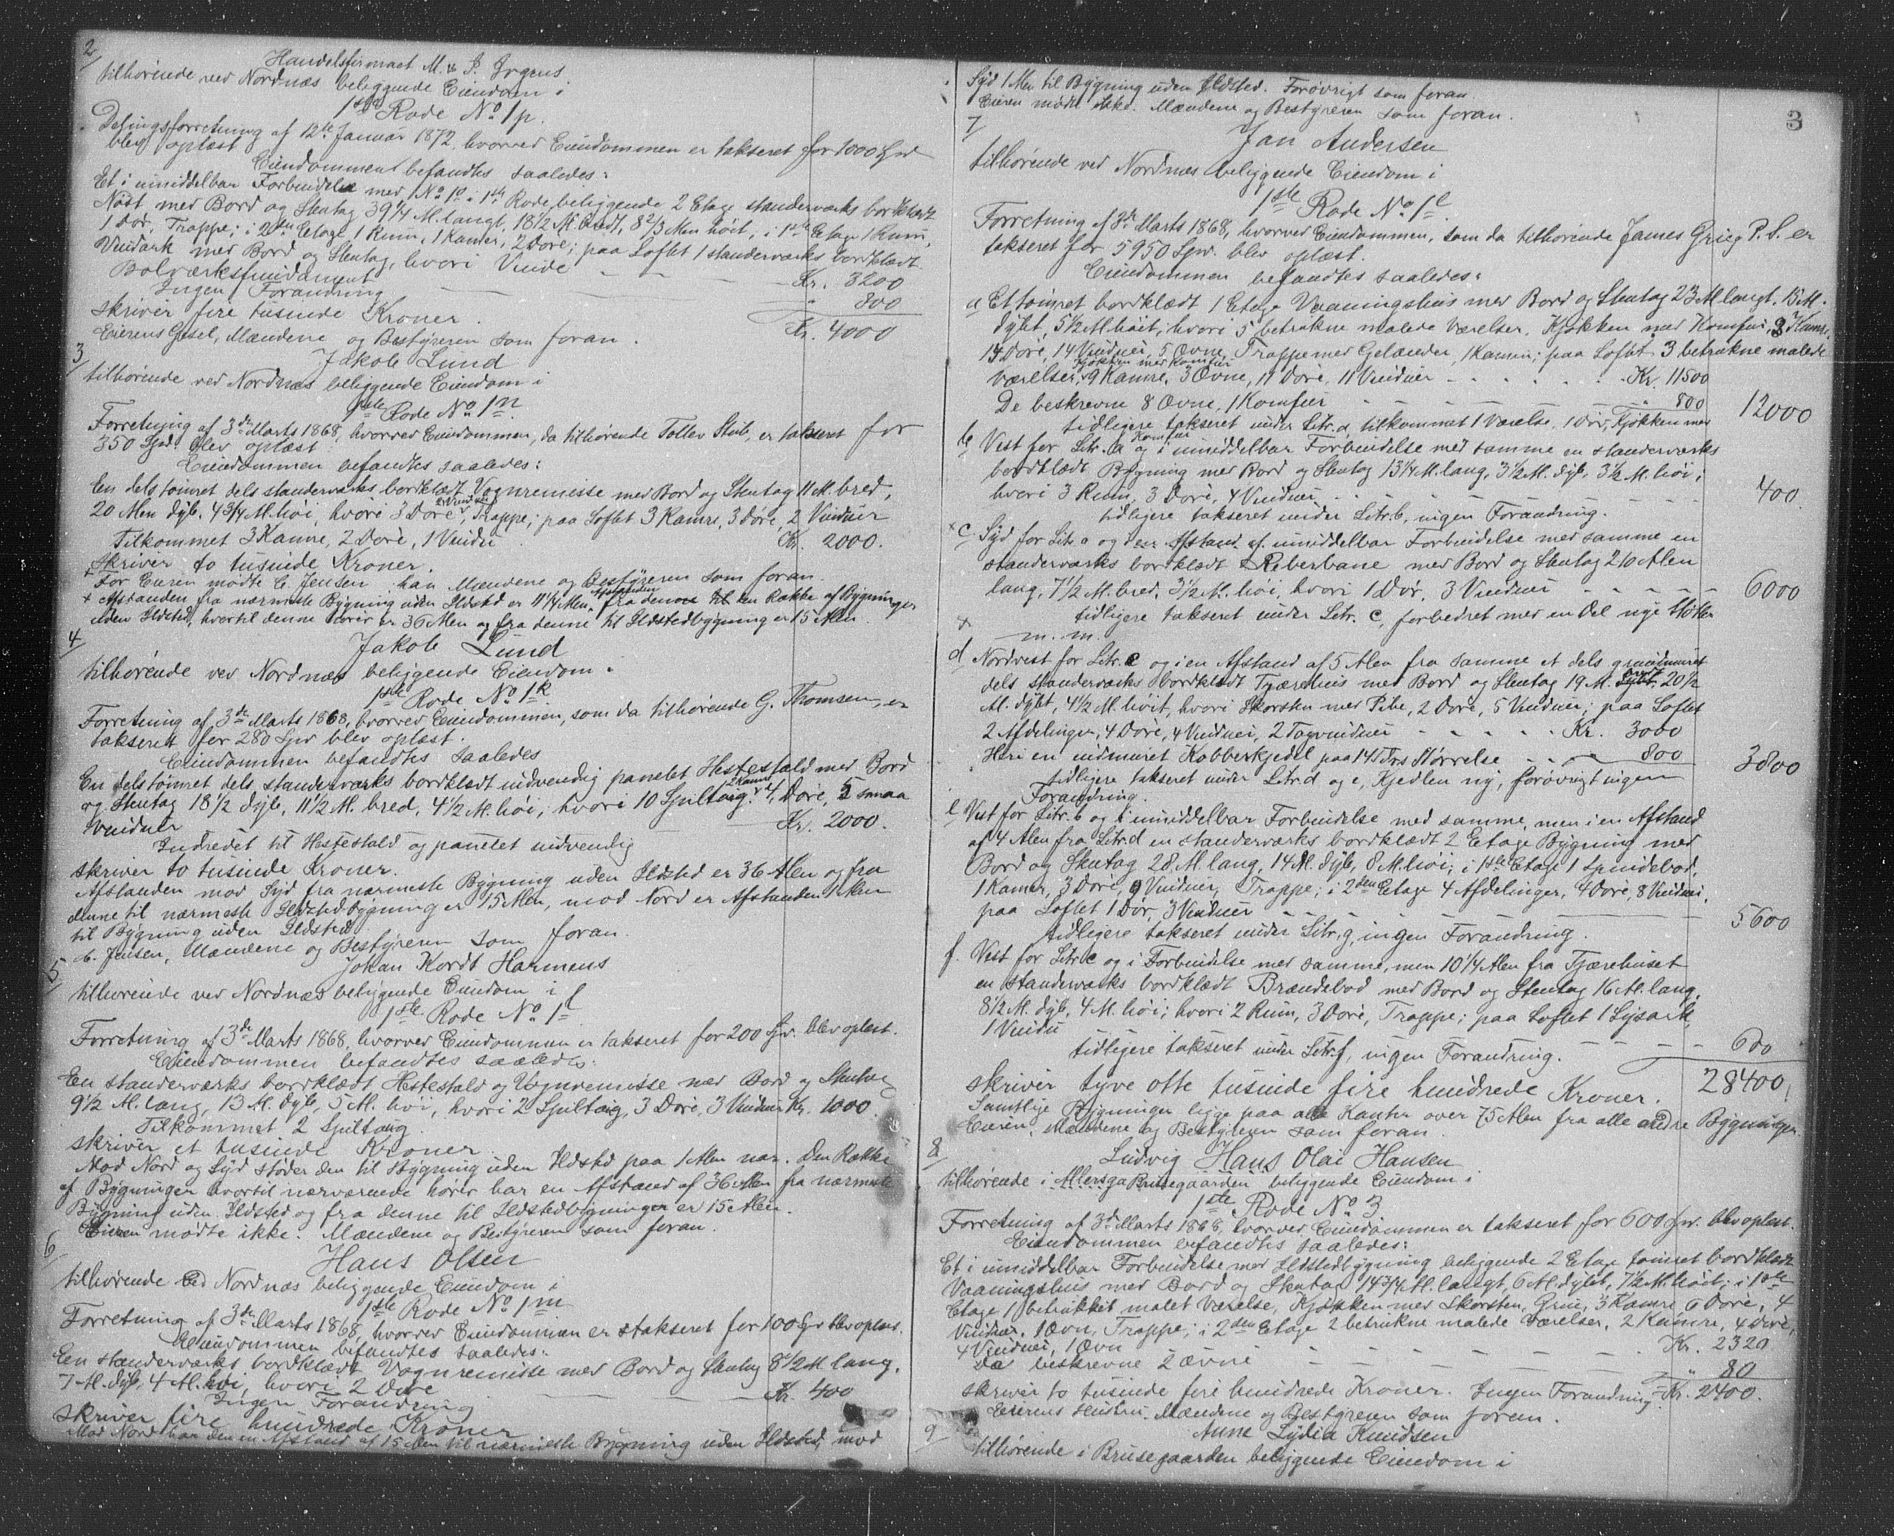 2/ Handelsfirmaet M. & S. Irgens
tilhørende ved Nordnæs beliggende Eiendom i
1ste Rode No 1p.
Delingsforretning af 12te Januar 1872, hvorved Eiendommen er takseret for 1000 Spd
blev oplæst
Eiendommen befandtes saaledes:
Et i umiddelbar Forbindelse med No 1o i 1ste Rode beliggende 2 Etage standerværks bordklædt
Nøst med Bord og Stentag 39 1/4 Al. langt, 18 1/2 Al. bredt, 8 2/3 Alen høit, i 1ste Etage 1 Rum,
1 Dør, Trappe; i 2den Etage 1 Rum, 1 Kamer, 2 Døre; paa Loftet 1 standerværks bordklædt
Vindark med Bord og Stentag, hvori Vinde Kr. 3200
Bolværksfundament " 800
Ingen Forandring
skriver fire tusinde Kroner. Kr. 4000
Eierens Gesel, Mændene og Bestyreren som foran.
3/ Jakob Lund
tilhørende ved Nordnæs beliggende Eiendom i
1ste Rode No 1n
Forretning af 3de Marts 1868, hvorved Eiendommen, da tilhørende Tollev Stub, er takseret for
350 Spd. blev oplæst
Eiendommen befandtes saaledes:
En dels tømret dels standerværks bordklædt Vognremisse med Bord og Stentag 11 Al. bred,
20 Alen dyb, 4 3/4 Al. høi, hvori 3 Døre, Trappe; paa Loftet 3 Kamre, 3 Døre, 2 Vinduer
Tilkommet 3 Kamre, 2 Døre, 1 Vindu Kr. 2000.
skriver to tusinde Kroner.
For Eieren mødte C. Jensen han Mændene og Bestyreren som foran.
+ Afstanden fra nærmeste Bygning uden Ildsted er 11 1/4 Alen, Afstanden fra denne til den Række af Bygninger
uden Ildsted, hvortil denne hører er 36 Alen og fra denne til Ildstedbygning er 15 Alen.
4/ Jakob Lund
tilhørende ved Nordnæs beliggende Eiendom i
1ste Rode No 1k
Forretning af 3de Marts 1868, hvorved Eiendommen, som da tilhørende G. Thomsen, er
takseret for 280 Spd blev oplæst.
Eiendommen befandtes saaledes
En dels tømret dels standerværks bordklædt indvendig panelet Hestestald med Bord
og Stentag 18 1/2 dyb, 11 1/2 Al. bred, 4 1/2 Al. høi, hvori 10 Spiltoug, 2 Kamre, 4 Døre, 5 smaa
Vinduer Kr. 2000.
Indredet til Hestestald og panelet indvendig
skriver to tusinde Kroner.
Afstanden mod Syd fra nærmeste Bygning uden Ildsted er 36 Alen og fra
denne til nærmeste Ildstedbygning er 15 Alen, mod Nord er Afstanden 1 Alen
til Bygning uden Ildsted
C. Jensen, Mændene og Bestyreren som foran.
5/ Johan Kordt Harmens
tilhørende ved Nordnæs beliggende Eiendom i
1ste Rode No 1l
Forretning af 3de Marts 1868, hvorved Eiendommen er takseret for 200 Spd. blev oplæst.
Eiendommen befandtes saaledes:
En standerværks bordklædt Hestestald og Vognremisse med Bord og Stentag
9 1/2 Al. lang, 13 Al. dyb, 5 Al. høi, hvori 2 Spiltoug, 3 Døre, 3 Vinduer Kr. 1000.
Tilkommet 2 Spiltoug.
skriver et tusinde Kroner.
Mod Nord og Syd støder den til Bygning uden Ildsted paa 1 Alen nær. Den Række
af Bygninger hvortil nærværende hører har en Afstand af 36 Alen fra nærmeste
Bygning uden Ildsted og fra denne til Ildstedbygninger er 15 Alen.
Eieren mødte ikke. Mændene og Bestyreren som foran.
6/ Hans Olsen
tilhørende ved Nordnæs beliggende Eiendom i
1ste Rode No 1m
Forretning af 3de Marts 1868, hvorved Eiendommen er takseret for 100 Spd blev oplæst.
Eiendommen befandtes saaledes:
En standerværks bordklædt Vognremisse med Bord og Stentag 8 1/2 Al lang.
7 Al. dyb, 4 Al. høi, hvori 2 Døre Kr. 400
Ingen Forandring
skriver fire hundrede Kroner
Mod Nord har den en Afstand af 15 Alen til nærmeste Bygning uden Ildsted, mod
3
Syd 1 Alen til Bygning uden Ildsted. Forøvrigt som foran
Eieren mødte ikke. Mændene og Bestyreren som foran.
7/ Jan Andersen
tilhørende ved Nordnæs beliggende Eiendom i
1ste Rode No 1c.
Forretning af 3de Marts 1868, hvorved Eiendommen, som da tilhørende James Grieg P. S. er
takseret for 5950 Spd. blev oplæst.
Eiendommen befandtes saaledes:
a Et tømret bordklædt 1 Etage Vaaningshus med Bord og Stentag 23 Al langt, 15 Al.
dybt, 5 1/2 Al. høit, hvori 5 betrukne malede Værelser, Kjøkken med Komfur, 3 Kamre,
14 Døre, 14 Vinduer, 5 Ovne, Trappe med Gelænder, 1 Kamer; paa Loftet 3 betrukne malede
Værelser, Kjøkken med Komfur, 9 Kamre, 3 Ovne, 11 Døre, 11 Vinduer Kr. 11500
De beskrevne 8 Ovne, 1 Komfur " 800 12000
tidligere takseret under Litr. a tilkommet 1 Værelse, 1 Dør, Kjøkken med
Komfur
b Vest for Litr. a og i umiddelbar Forbindelse med samme en standerværks
bordklædt Bygning med Bord og Stentag 13 1/4 Al. lang, 3 1/2 Al. dyb, 3 1/2 Al. høi;
hvori 3 Rum, 3 Døre, 4 Vinduer 400
tidligere takseret under Litr. b, ingen Forandring.
x c Syd for Litr. a og i umiddelbar Forbindelse med samme en
standerværks bordklædt Reberbane med Bord og Stentag 210 Alen
lang, 7 1/2 Al. bred, 3 1/2 Al. høi, hvori 1 Dør, 3 Vinduer 6000
x tidligere takseret under Litr. c, forbedret med en Del nye Støtter
m. m.
d Nordvest for Litr. c og i en Afstand af 5 Alen fra samme et dels grundmuret
dels standerværks bordklædt Tjærehus med Bord og Stentag 19 Al. bredt 20 1/2
Al. dybt, 4 1/2 Al. høit, hvori Skorsten med Pibe, 2 Døre, 5 Vinduer; paa Loftet
2 Afdelinger, 4 Døre, 4 Vinduer, 2 Tagvinduer Kr. 3000
Heri en indmuret Kobberkjedel paa 14 Tdrs Størrelse 800 3800
tidligere takseret under Litr. d og e, Kjedlen ny, forøvrigt ingen
Forandring.
e Vest for Litr. b og i umiddelbar Forbindelse med samme, men i en Afstand
af 4 Alen fra Litr. d en standerværks bordklædt 2 Etage Bygning med
Bord og Stentag 28 Al. lang, 14 Al. dyb, 8 Al. høi; i 1ste Etage 1 Spindebod,
1 Kamer, 3 Døre, 9 Vinduer, Trappe; i 2den Etage 4 Afdelinger, 4 Døre, 8 Vinduer,
paa Loftet 1 Dør, 3 Vinduer 5600
tidligere takseret under Litr. g, ingen Forandring.
f. Vest for Litr. c og i Forbindelse med samme, men 10 1/4 Alen fra Tjærehuset
en standerværks bordklædt Brændebod med Bord og Stentag 16 Al. lang,
8 1/2 Al. dyb, 4 Al. høi; hvori 2 Rum, 3 Døre, Trappe; paa Loftet 1 Lysark,
1 Vindu 600
tidligere takseret under Litr. f, ingen Forandring.
skriver tyve otte tusinde fire hundrede Kroner. 28400
Samtlige Bygninger ligge paa alle Kanter over 75 Alen fra alle andre Bygninger
Eieren, Mændene og Bestyreren som foran.
8/ Ludvig Hans Olai Hansen
tilhørende i Allersga Brusegaarden beliggende Eiendom i
1ste Rode No 3
Forretning af 3de Marts 1868, hvorved Eiendommen er takseret for 600 Spd. blev oplæst.
Eiendommen befandtes saaledes:
Et i umiddelbar Forbindelse med Ildstedbygning beliggende 2 Etage tømret bordklædt
Vaaningshus med Bord og Stentag 14 3/4 Al. langt, 6 Al. dybt, 7 1/2 Al. høit; i 1ste
Etage 1 betrukket malet Værelse, Kjøkken med Skorsten, Grue, 3 Kamre, 6 Døre, 4
Vinduer, 1 Ovn, Trappe; i 2den Etage 2 betrukne malede Værelser, 2 Kamre, 4 Døre,
4 Vinduer, 1 Ovn Kr. 2320
De beskrevne 2 Ovne " 80
skriver to tusinde fire hundrede Kroner. Ingen Forandring. Kr. 2400.
Eierens Hustru, Mændene og Bestyreren som foran.
9/ Anne Lydia Knudsen
tilhørende i Brusegaarden beliggende Eiendom i